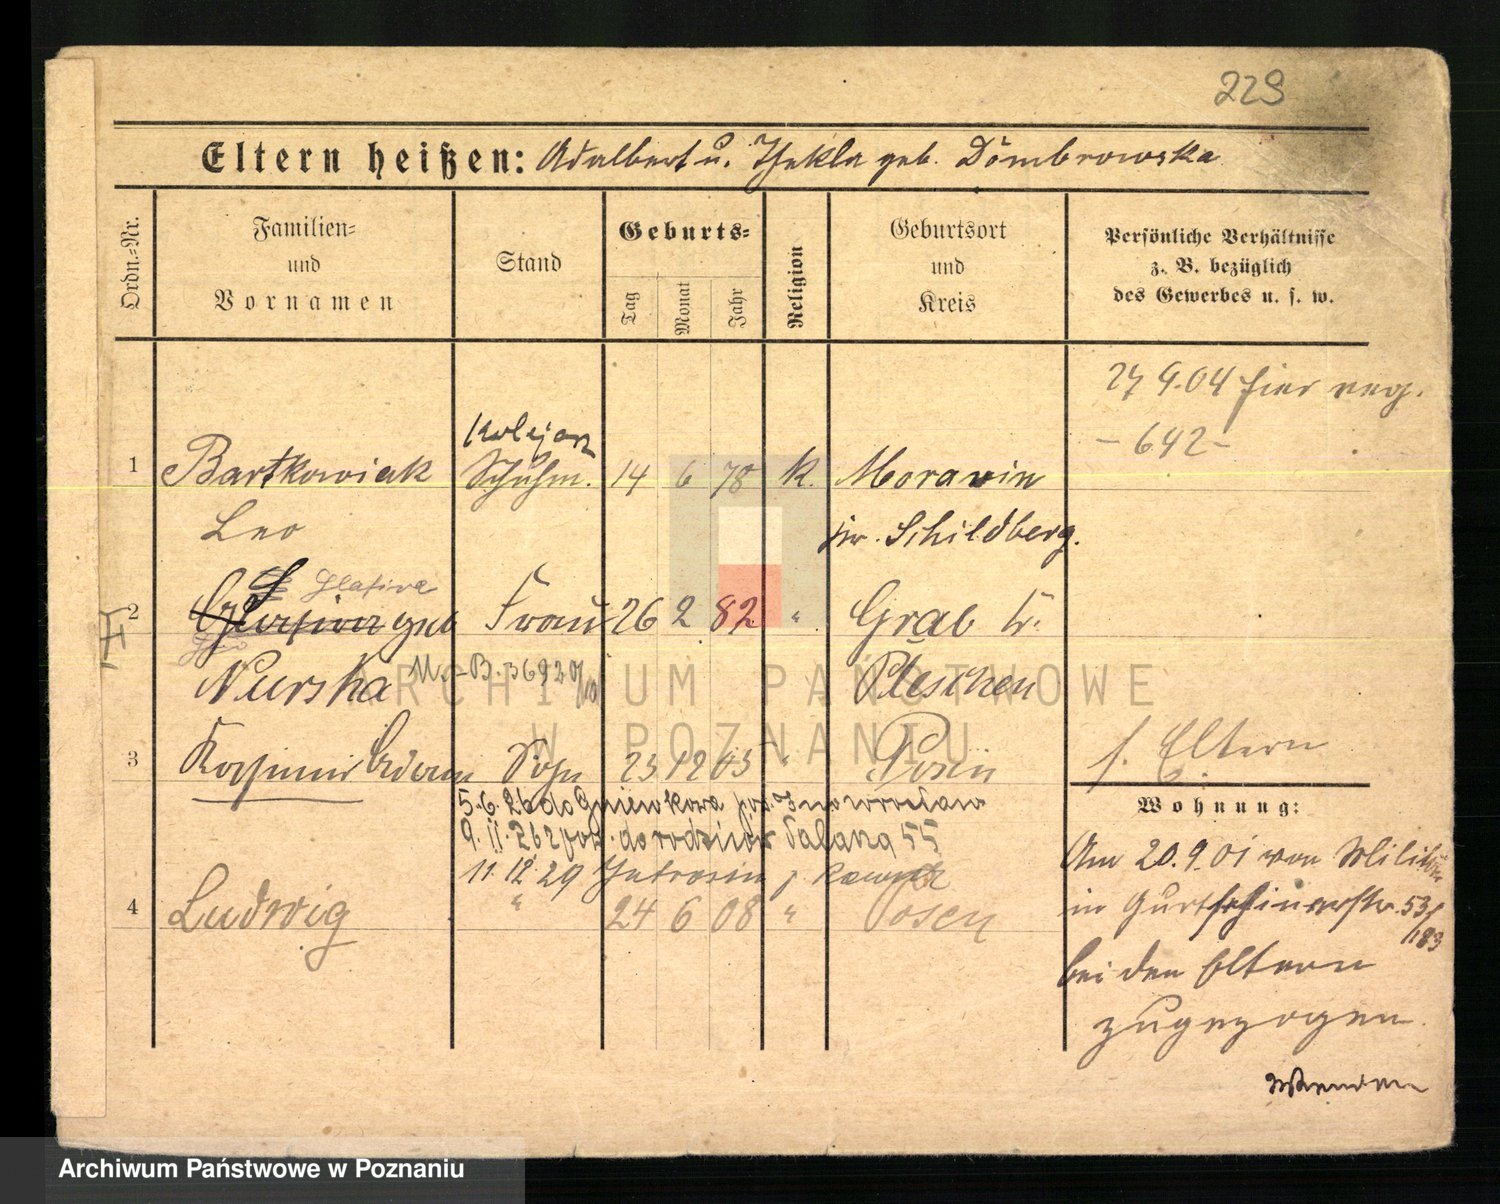 229
Eltern heißen: Adalbert u. Thekla geb. Dombrowska
Ordn.=Nr.
Familien=
und
Vornamen
Stand
Geburts=
Tag
Monat
Jahr
Religion
Geburtsort
und
Kreis
Persönliche Verhältnisse
z. B. bezüglich
des Gewerbes u. s. w.
27 9.04 hier
- 642 -
Kolejarz
1 Bartkowiak Schuhm. 14 6 78 k. Moravin
Leo
kr. Schildberg.
2 geb Frau 26 2 82 " Grab kr.
Nurska
Pleschen
3 Kasimir Adam Sohn 23 12 05 " Posen
s. Eltern
5.6.26 do Gniewkowa pow. Inowrocław
9.11.26 z pow. do rodziców 55
11.12.29
4 Ludwig " 24 6 08 " Posen
Wohnung:
Am 20.9.01 von Militär
in 53/183
bei den Eltern
zugezogen.
Wenden
ARCHIWUM PAŃSTWOWE
W POZNANIU
Archiwum Państwowe w Poznaniu